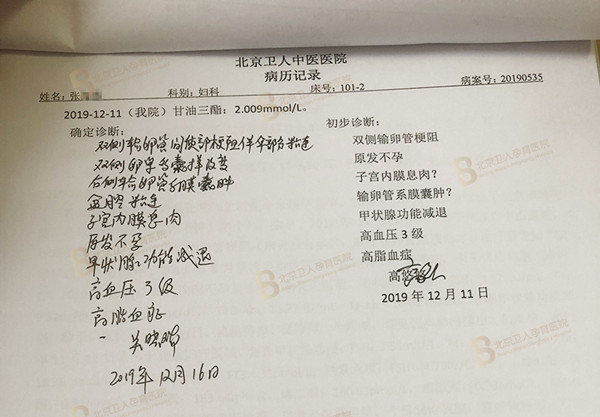 北京卫人中医医院
病历记录
姓名：张 科别：妇科 床号：101-2 病案号：20190535
2019-12-11（我院）甘油三酯：2.009mmol/L。
确定诊断：
双侧输卵管间质部梗阻伴伞部粘连
双侧卵巢多囊样改变
右侧输卵管系膜囊肿
盆腔粘连
子宫内膜息肉
原发不孕
甲状腺功能减退
高血压3级
高脂血症
2019年12月16日
初步诊断：
双侧输卵管梗阻
原发不孕
子宫内膜息肉？
输卵管系膜囊肿？
甲状腺功能减退
高血压 3 级
高脂血症
2019 年 12 月 11 日
北京卫人孕育医院